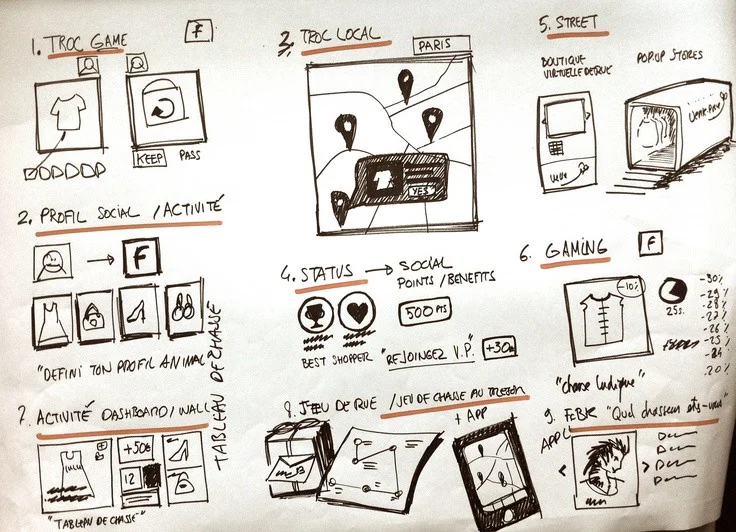 1. TROC GAME
F
KEEP PASS
2. PROFIL SOCIAL / ACTIVITÉ
F
"DEFINI TON PROFIL ANIMAL"
7. ACTIVITÉ DASHBOARD/WALL
+50
12
"TABLEAU DE CHASSE"
TABLEAU DE CHASSE
3. TROC LOCAL
PARIS
YES
4. STATUS → SOCIAL
POINTS / BENEFITS
500 PTS
BEST SHOPPER
"REJOINGEZ V.P."
+30
8. JEU DE RUE / JEU DE CHASSE AU TRESOR
+ APP
5. STREET
BOUTIQUE
VIRTUELLE DE RUE
POP-UP STORES
6. GAMING
F
-10%
25s.
-30%
-29%
-28%
-27%
-26%
-25%
-24
-20%
"chasse ludique"
9. FCBK "Quel chasseur êtes-vous"
APPLI